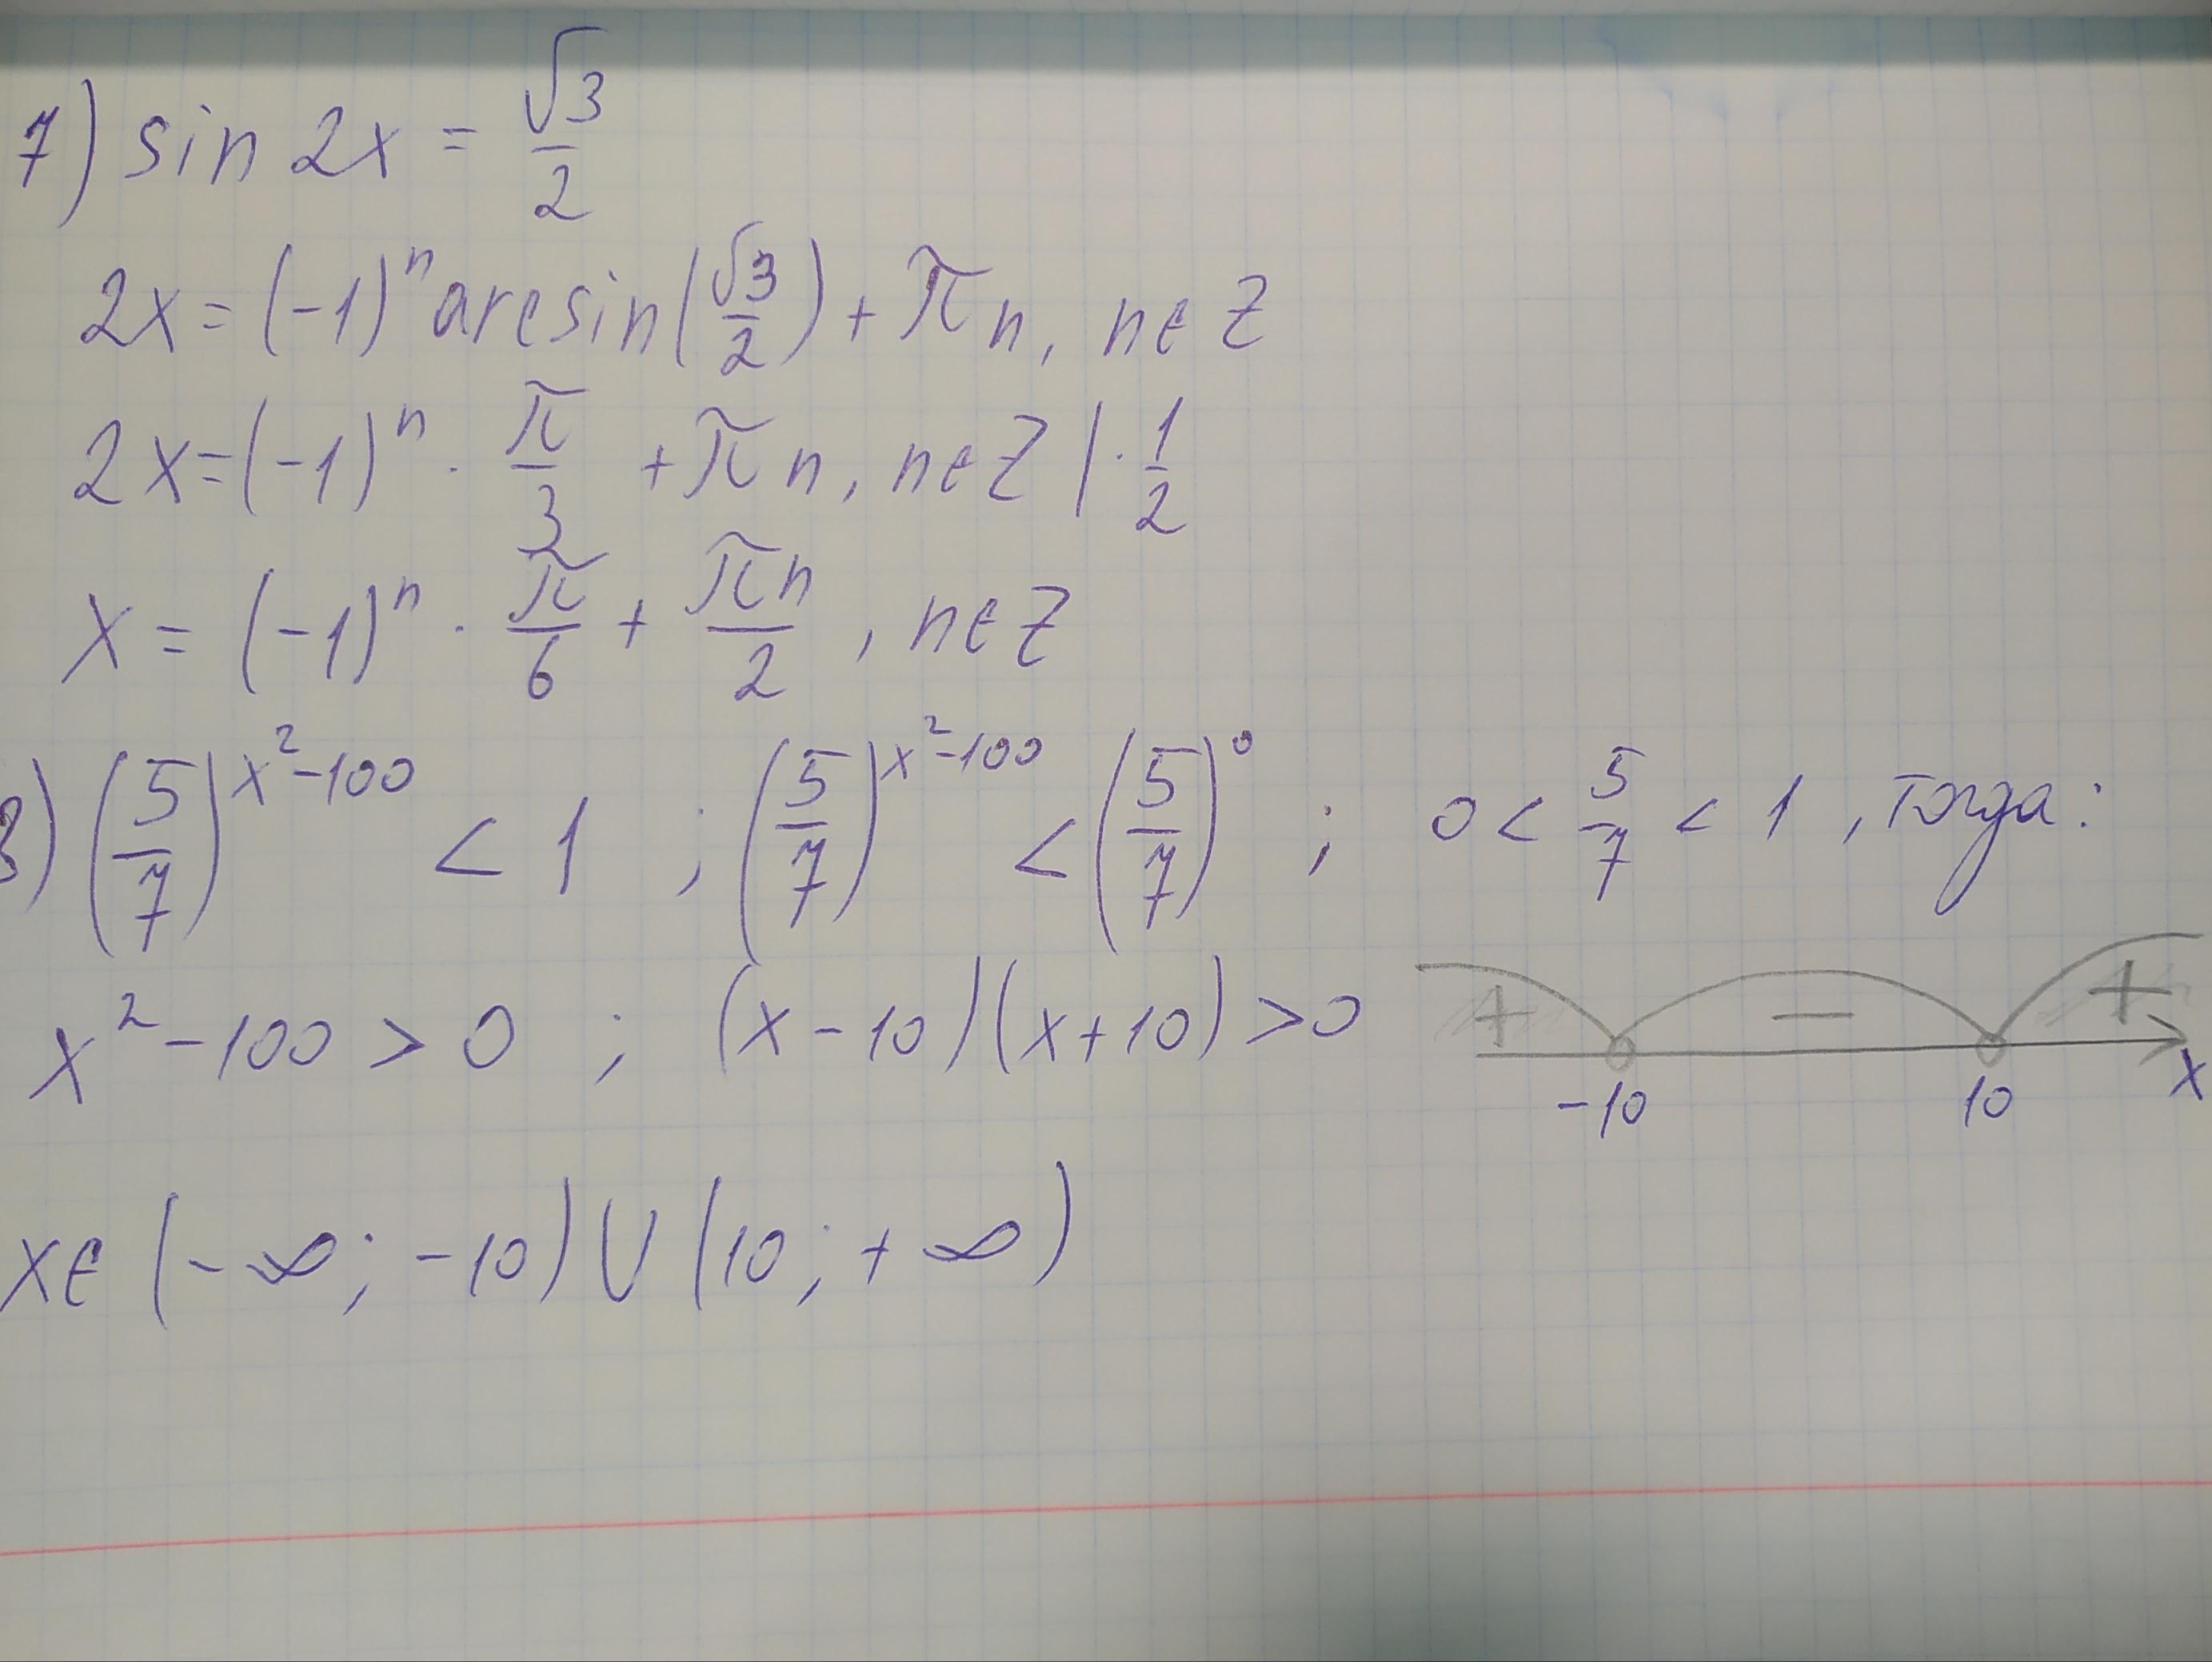 7) sin 2x = √3/2
2x = (-1)ⁿ arcsin(√3/2) + πn, n∈Z
2x = (-1)ⁿ · π/3 + πn, n∈Z | · 1/2
x = (-1)ⁿ · π/6 + πn/2, n∈Z
8) (5/7)^(x²-100) < 1 ; (5/7)^(x²-100) < (5/7)⁰ ; 0 < 5/7 < 1, тогда:
x² - 100 > 0 ; (x - 10)(x + 10) > 0 + − +
-10 10 x
x∈ (-∞; -10) ∪ (10; +∞)